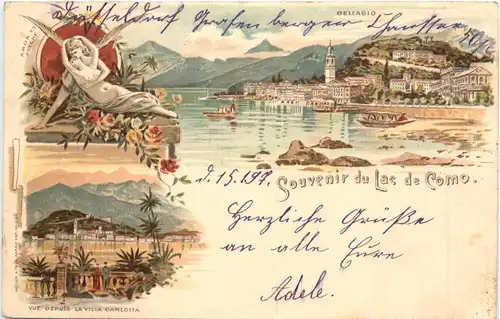 Düsseldorf Grafenberger Chaussee 50/2
BELLAGIO
AMOR
Souvenir du Lac de Como.
Herzliche Grüße
an alle Eure
Adele.
VUE DEPUIS LA VILLA CARLOTTA